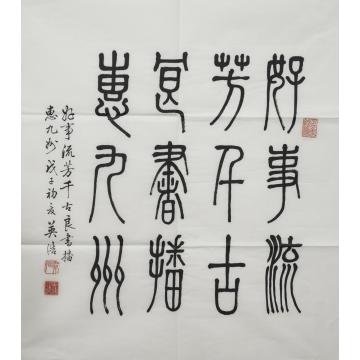 好事流
芳千古
良書播
惠九州
好事流芳千古良書播
惠九州 戊子初夏英浩